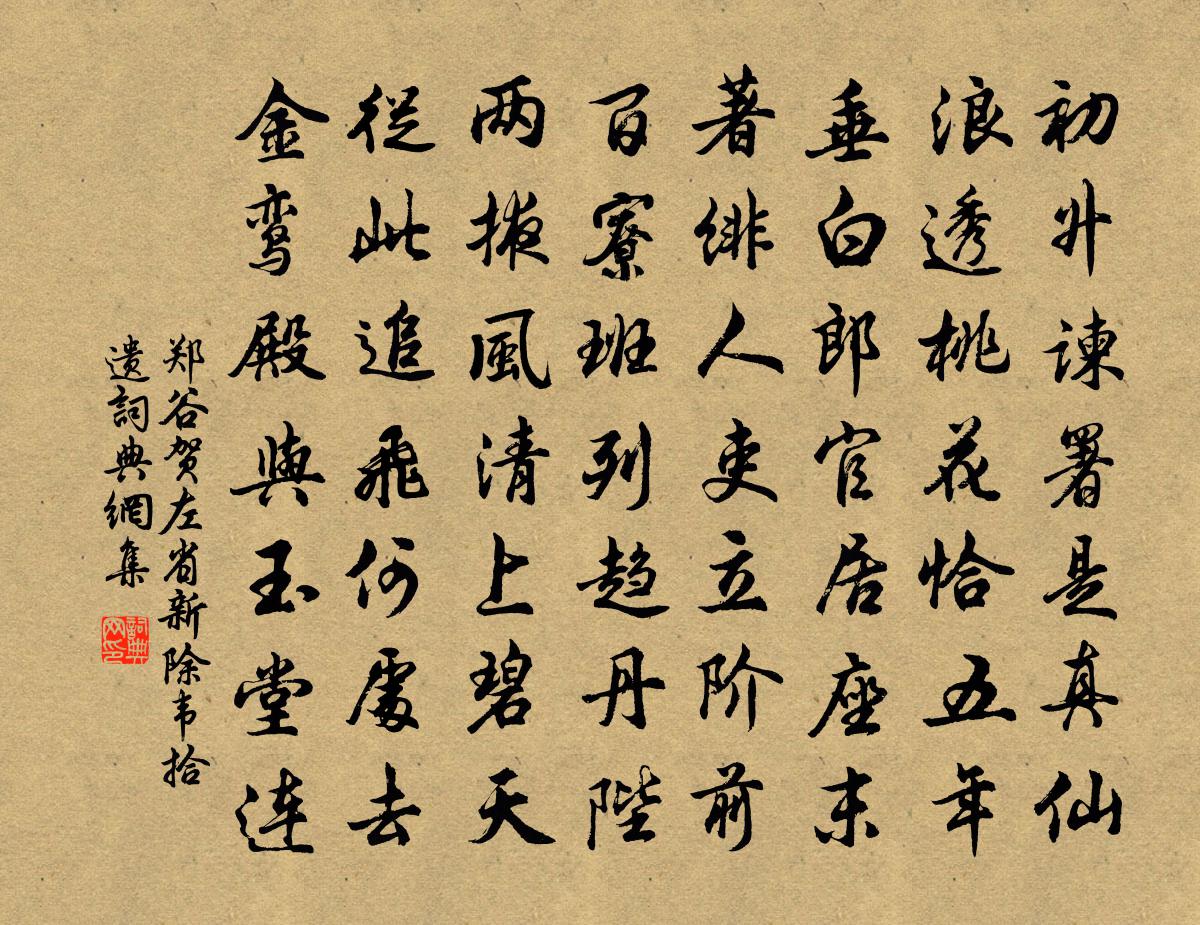 初升諫署是真仙
浪透桃花恰五年
垂白郎官居座末
著緋人吏立阶前
百寮班列趋丹陛
两掖風清上碧天
從此追飛何處去
金鸾殿與玉堂连
郑谷贺左省新除韦拾
遗詞典網集
詞典网印